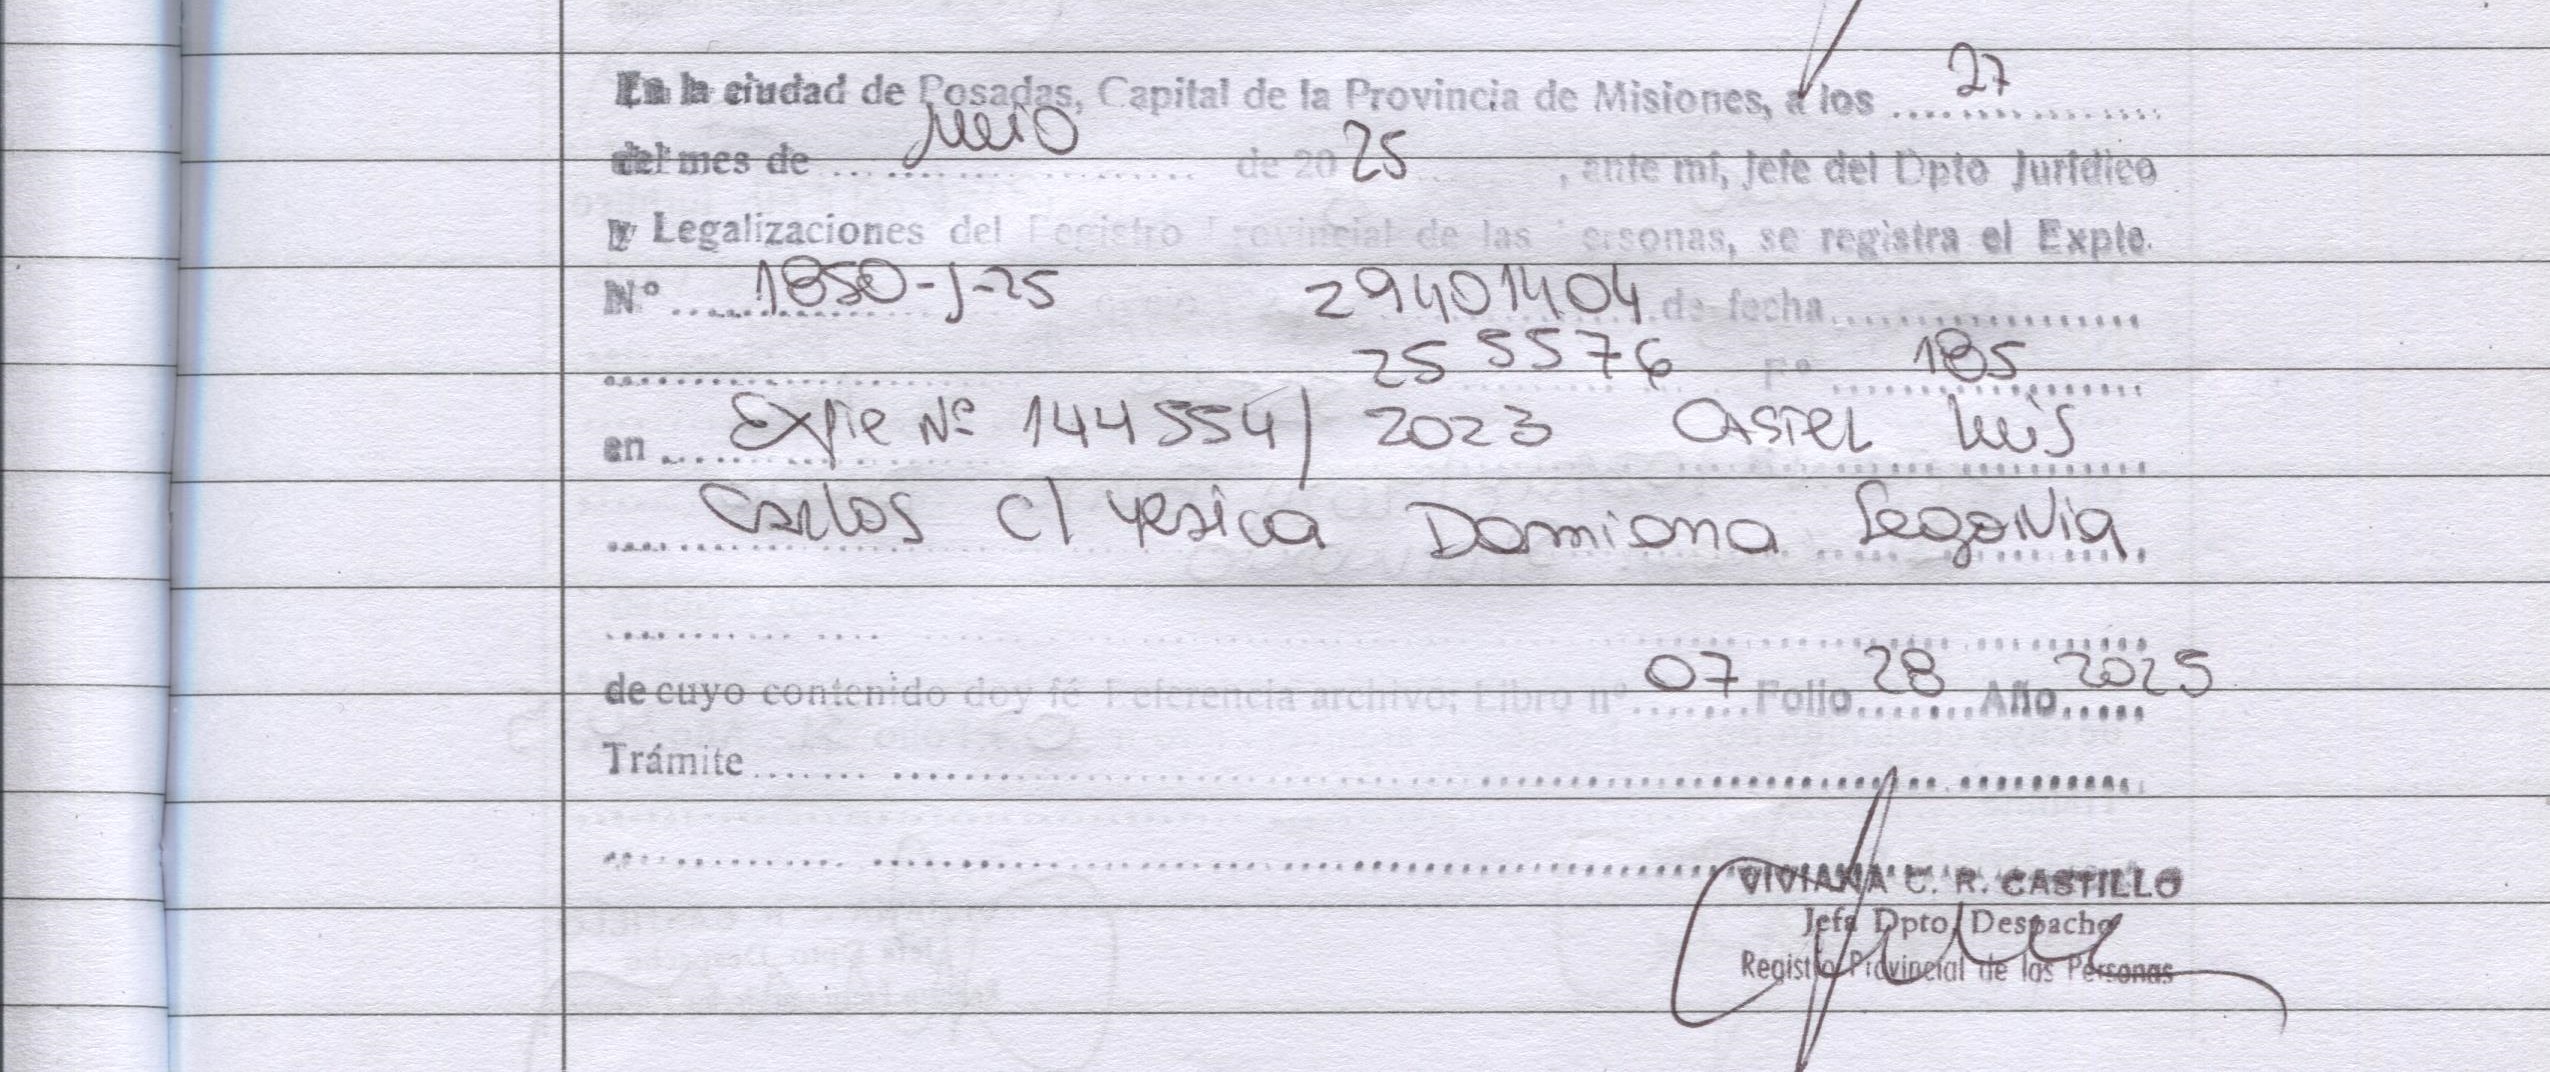 En la ciudad de Posadas, Capital de la Provincia de Misiones, a los 27
del mes de de 2025, ante mí, Jefe del Dpto Jurídico
y Legalizaciones del Registro Provincial de las Personas, se registra el Expte.
Nº 1850-J-25 29401404 de fecha
255576 Fº 185
en Expte Nº 144554/2023 CASTEL Luis
Carlos c/ Yesica Damiana Segovia
de cuyo contenido doy fé Referencia archivo; Libro nº 07 Folio 28 Año 2025
Trámite
VIVIANA C. R. CASTILLO
Jefa Dpto. Despacho
Registro Provincial de las Personas